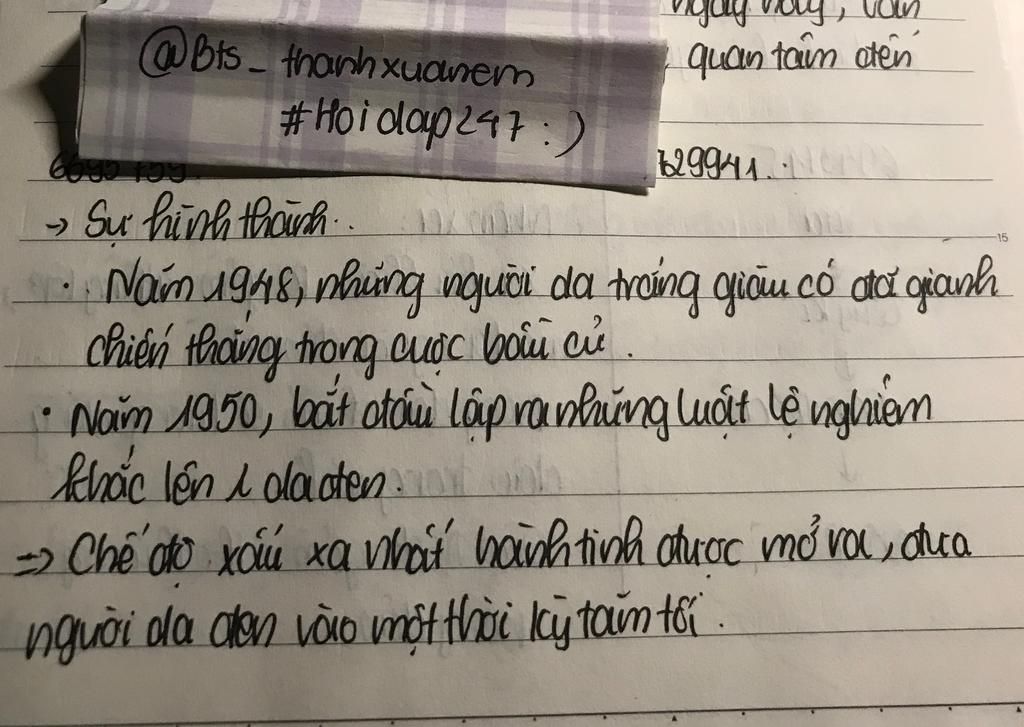 ngày nay, vẫn
@Bts_thanhxuanem
quan tâm đến
#Hoidap247 :)
29941.
→ Sự hình thành.
· Năm 1948, những người da trắng giàu có đã gianh
chiến thắng trong cuộc bầu cử.
· Năm 1950, bắt đầu lập ra những luật lệ nghiêm
khắc lên da đen.
=> Chế độ xấu xa nhất hành tinh được mở ra, đưa
người da đen vào một thời kỳ tăm tối.